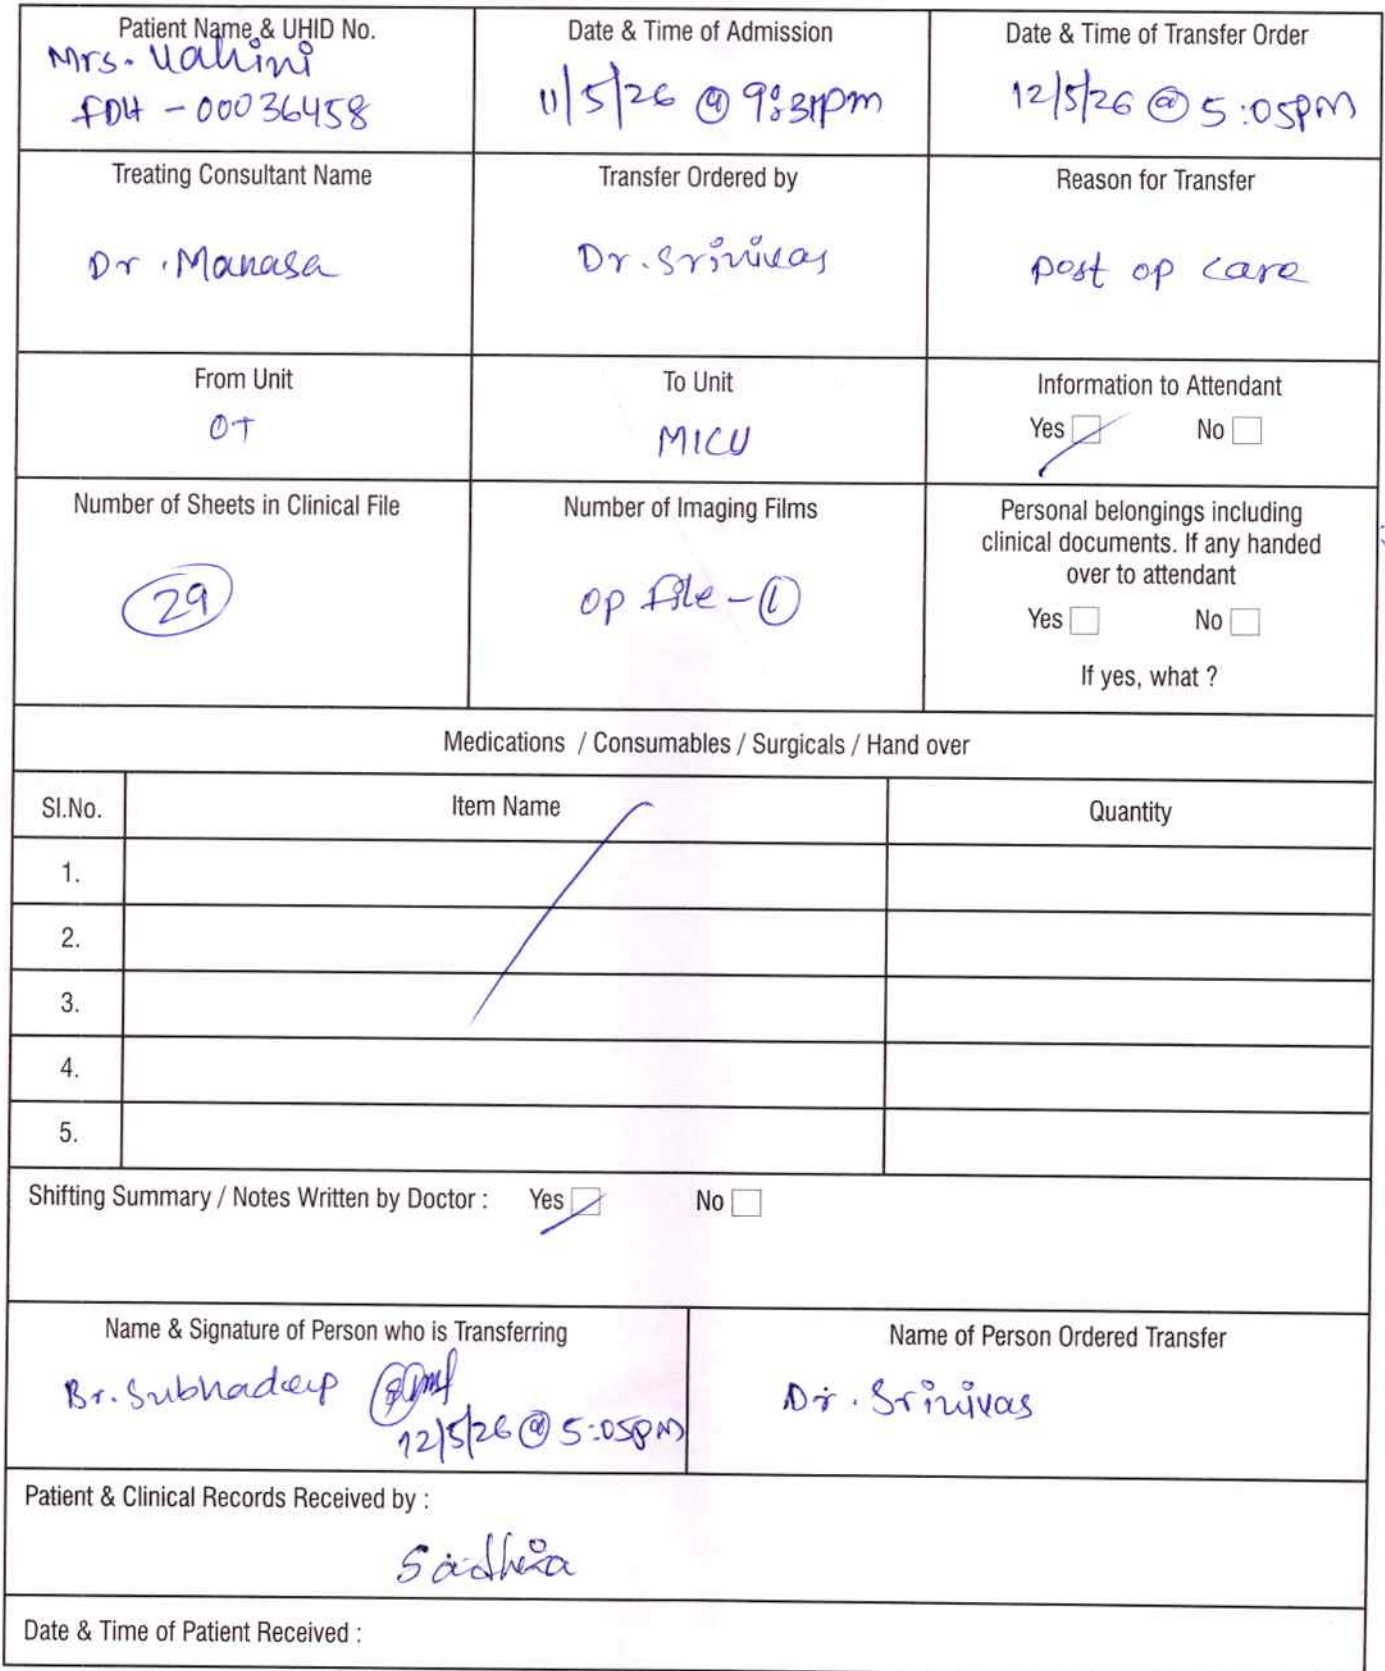 Patient Name & UHID No.
Mrs. Vahini
FDH - 00036458
Date & Time of Admission
11/5/26 @ 9:31pm
Date & Time of Transfer Order
12/5/26 @ 5:05PM
Treating Consultant Name
Dr. Manasa
Transfer Ordered by
Dr. Srinivas
Reason for Transfer
post op care
From Unit
OT
To Unit
MICU
Information to Attendant
Yes No
Number of Sheets in Clinical File
29
Number of Imaging Films
op file - 1
Personal belongings including
clinical documents. If any handed
over to attendant
Yes No
If yes, what ?
Medications / Consumables / Surgicals / Hand over
Sl.No. Item Name Quantity
1.
2.
3.
4.
5.
Shifting Summary / Notes Written by Doctor : Yes No
Name & Signature of Person who is Transferring
Br. Subhadeep
12/5/26 @ 5:05PM
Name of Person Ordered Transfer
Dr. Srinivas
Patient & Clinical Records Received by :
Date & Time of Patient Received :